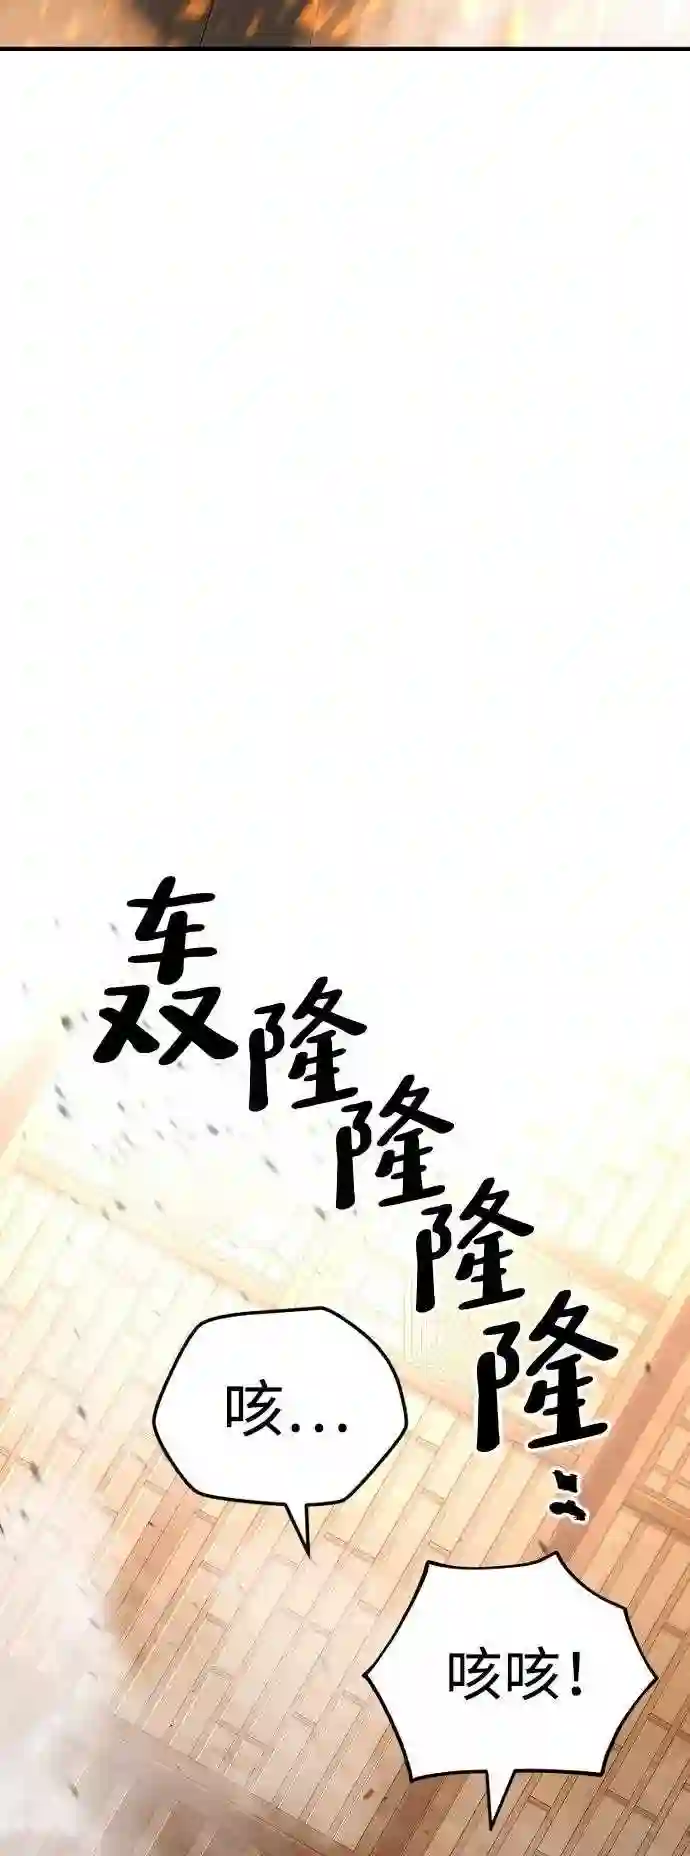 轰隆隆隆隆…
咳...
咳咳!